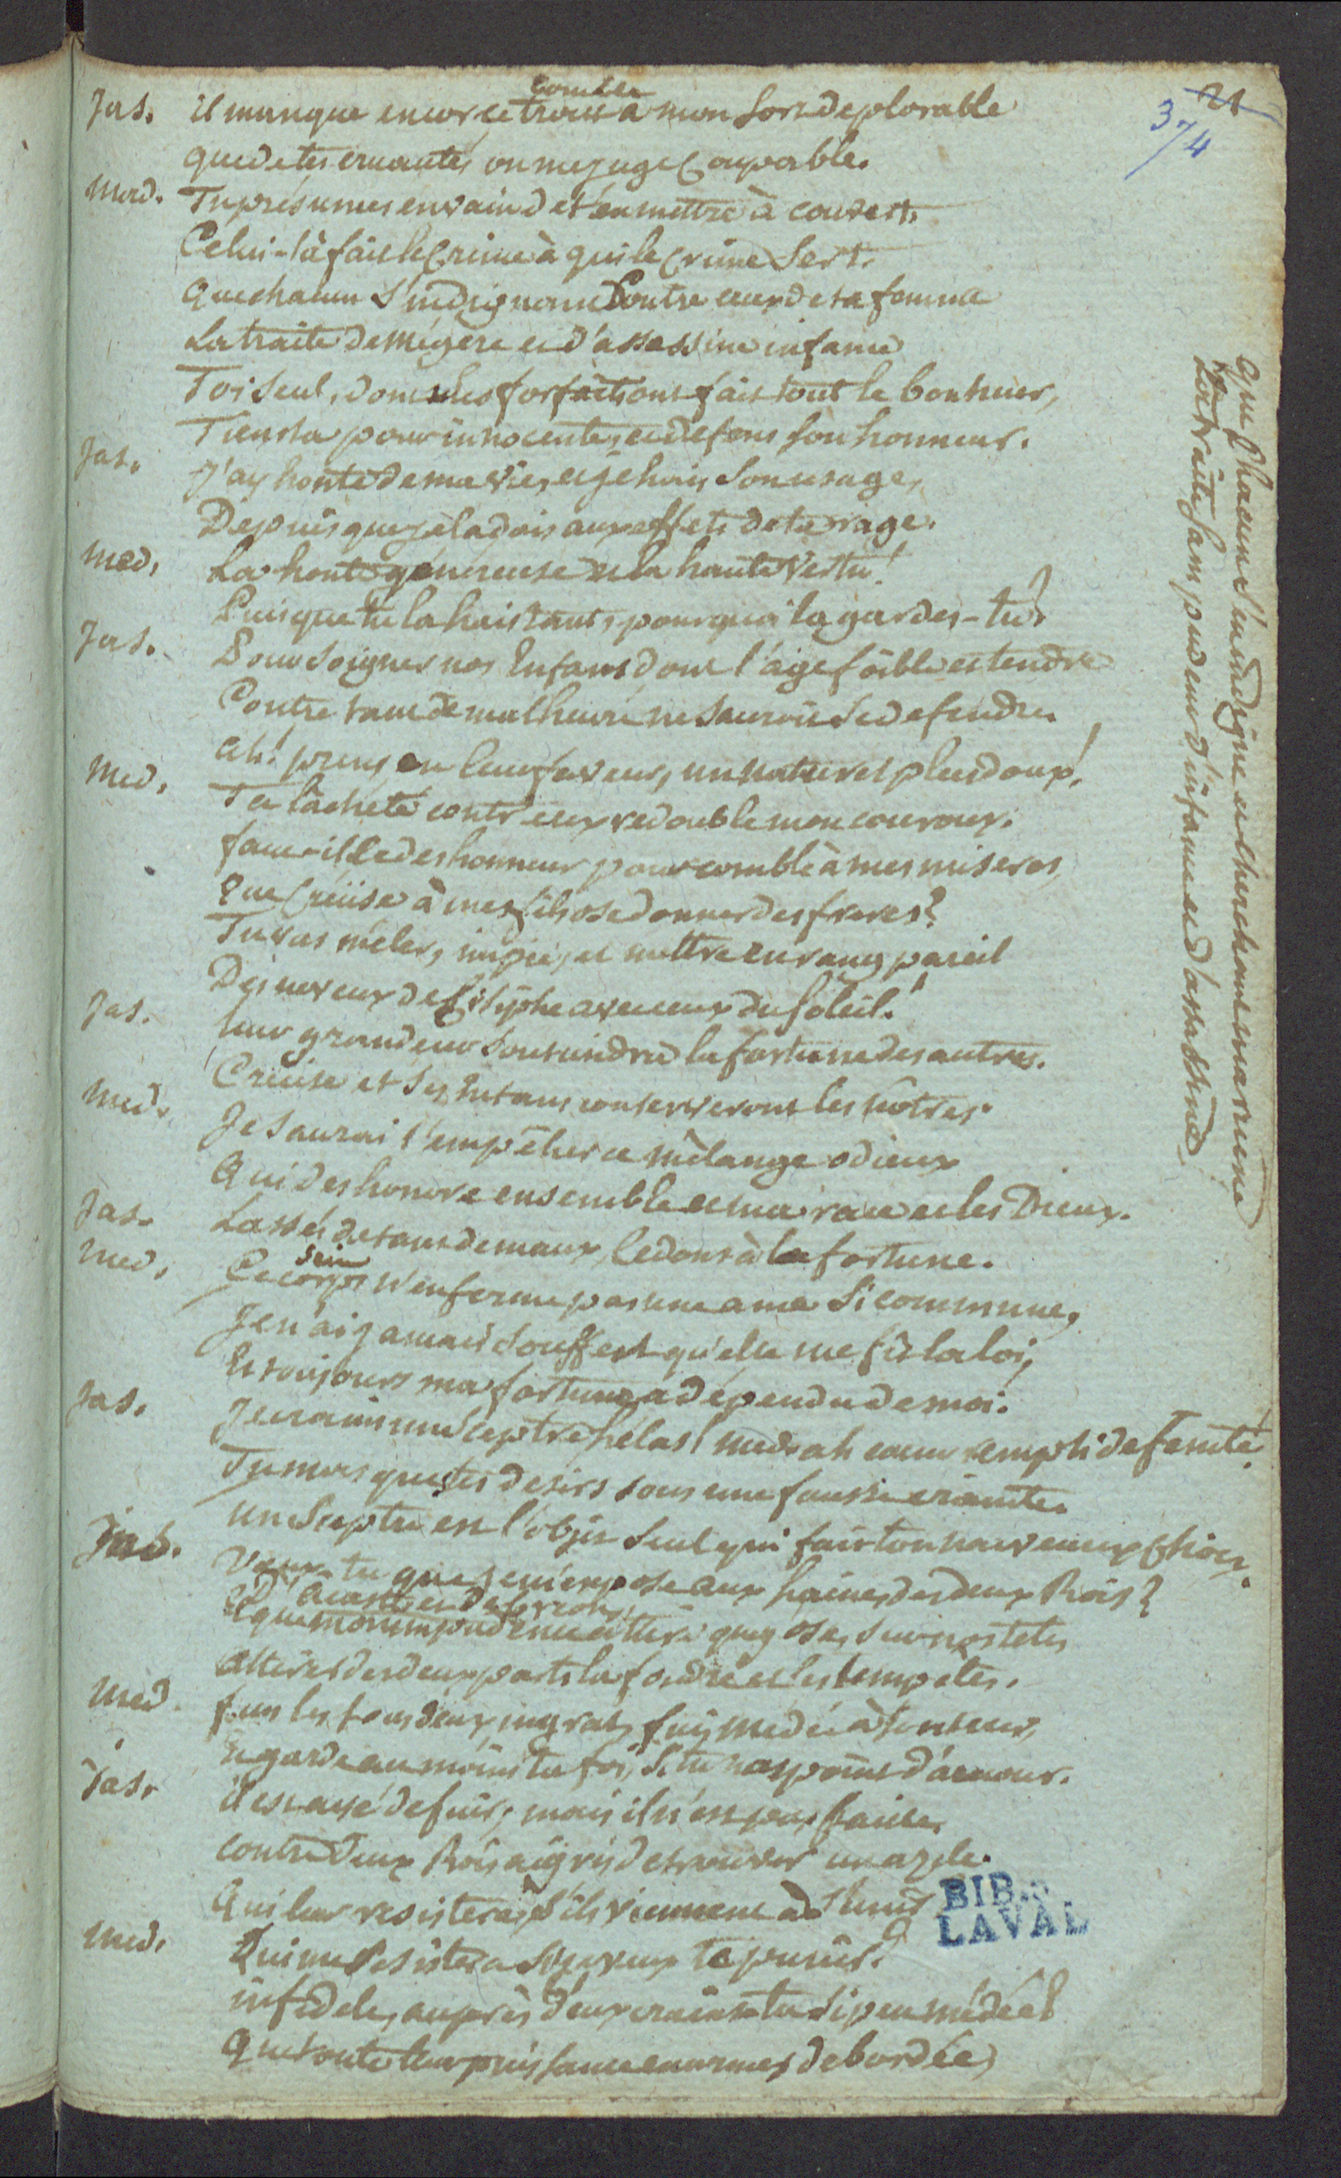 21
3/4
comble
Jas. il manque encor ce trait à mon sort deplorable
que de tes cruautés on me juge Coupable.
Med. Tu présumes en vain de t'en mettre à couvert.
Celui-là fait le Crime à qui le Crime sert.
que chacun s'indignant Contre ceux de ta femme
La traite de mégere et d'assassine infame
Toi seul, dont les forfaits ont fait tout le bonheur,
Tiens la pour innocente, et defens son honneur.
Jas. J'ay honte de ma vie, et je hais son usage,
Depuis que je la dois aux effets de ta rage.
Med. La honte généreuse et la haute Vertu!
Puisque tu la hais tant, pourquoi la gardes-tu?
Jas. Pour soigner nos Enfans dont l'âge foible et tendre
Contre tant de malheurs ne sauroit se defendre.
ah! prens en leur faveur, un naturel plus doux!
Med. Ta lâcheté contr'eux redouble mon couroux.
faut-il ce deshonneur pour comble à mes miseres,
Que Creüse à mes fils ose donner des freres?
Tu vas mêler, impie, et mettre en rang pareil
Des neveux de Sisyphe avec ceux du Soleil!
Jas. leur grandeur soutiendra la fortune des autres.
Creüse et ses Enfans conserveront les nôtres.
Med. Je saurai l'empêcher ce mêlange odieux
Qui deshonore ensemble et ma race et les Dieux.
Jas. Lassés de tant de maux, cedons à la fortune.
Sein
Med. Ce corps n'enferme pas une ame si commune,
Je n'ai jamais souffert qu'elle me fit la loi,
Et toujours ma fortune a dépendu de moi.
Jas. Je crains un Sceptre hélas! Med. ah coeur rempli de feinte!
Tu masques tes desirs sous une fausse crainte.
Un Sceptre est l'objet seul qui fait ton nouveau Choix.
Jas. Veux-tu que je m'expose aux haines des deux Rois?
Et que mon imprudence attire sur nos tetes
Attirer des deux parts la foudre et les tempêtes.
Med. fuis les tous deux, ingrat, fuis Medée à ton tour,
Et garde au moins ta foi, si tu n'as point d'amour.
Jas. il est aisé de fuir, mais il n'est pas facile
contre deux Rois aigris de trouver un azyle.
Qui leur resistera, s'ils viennent à s'unir
Med. Qui me resistera si je veux te punir?
infidele, auprès d'eux crains-tu si peu médée?
Que toute leur puissance en armes debordée,
que Chacun s'en indigne et cherchant ma ruine
La traite sans pudeur d'infame et d'assassine
BIB.
LAVAL